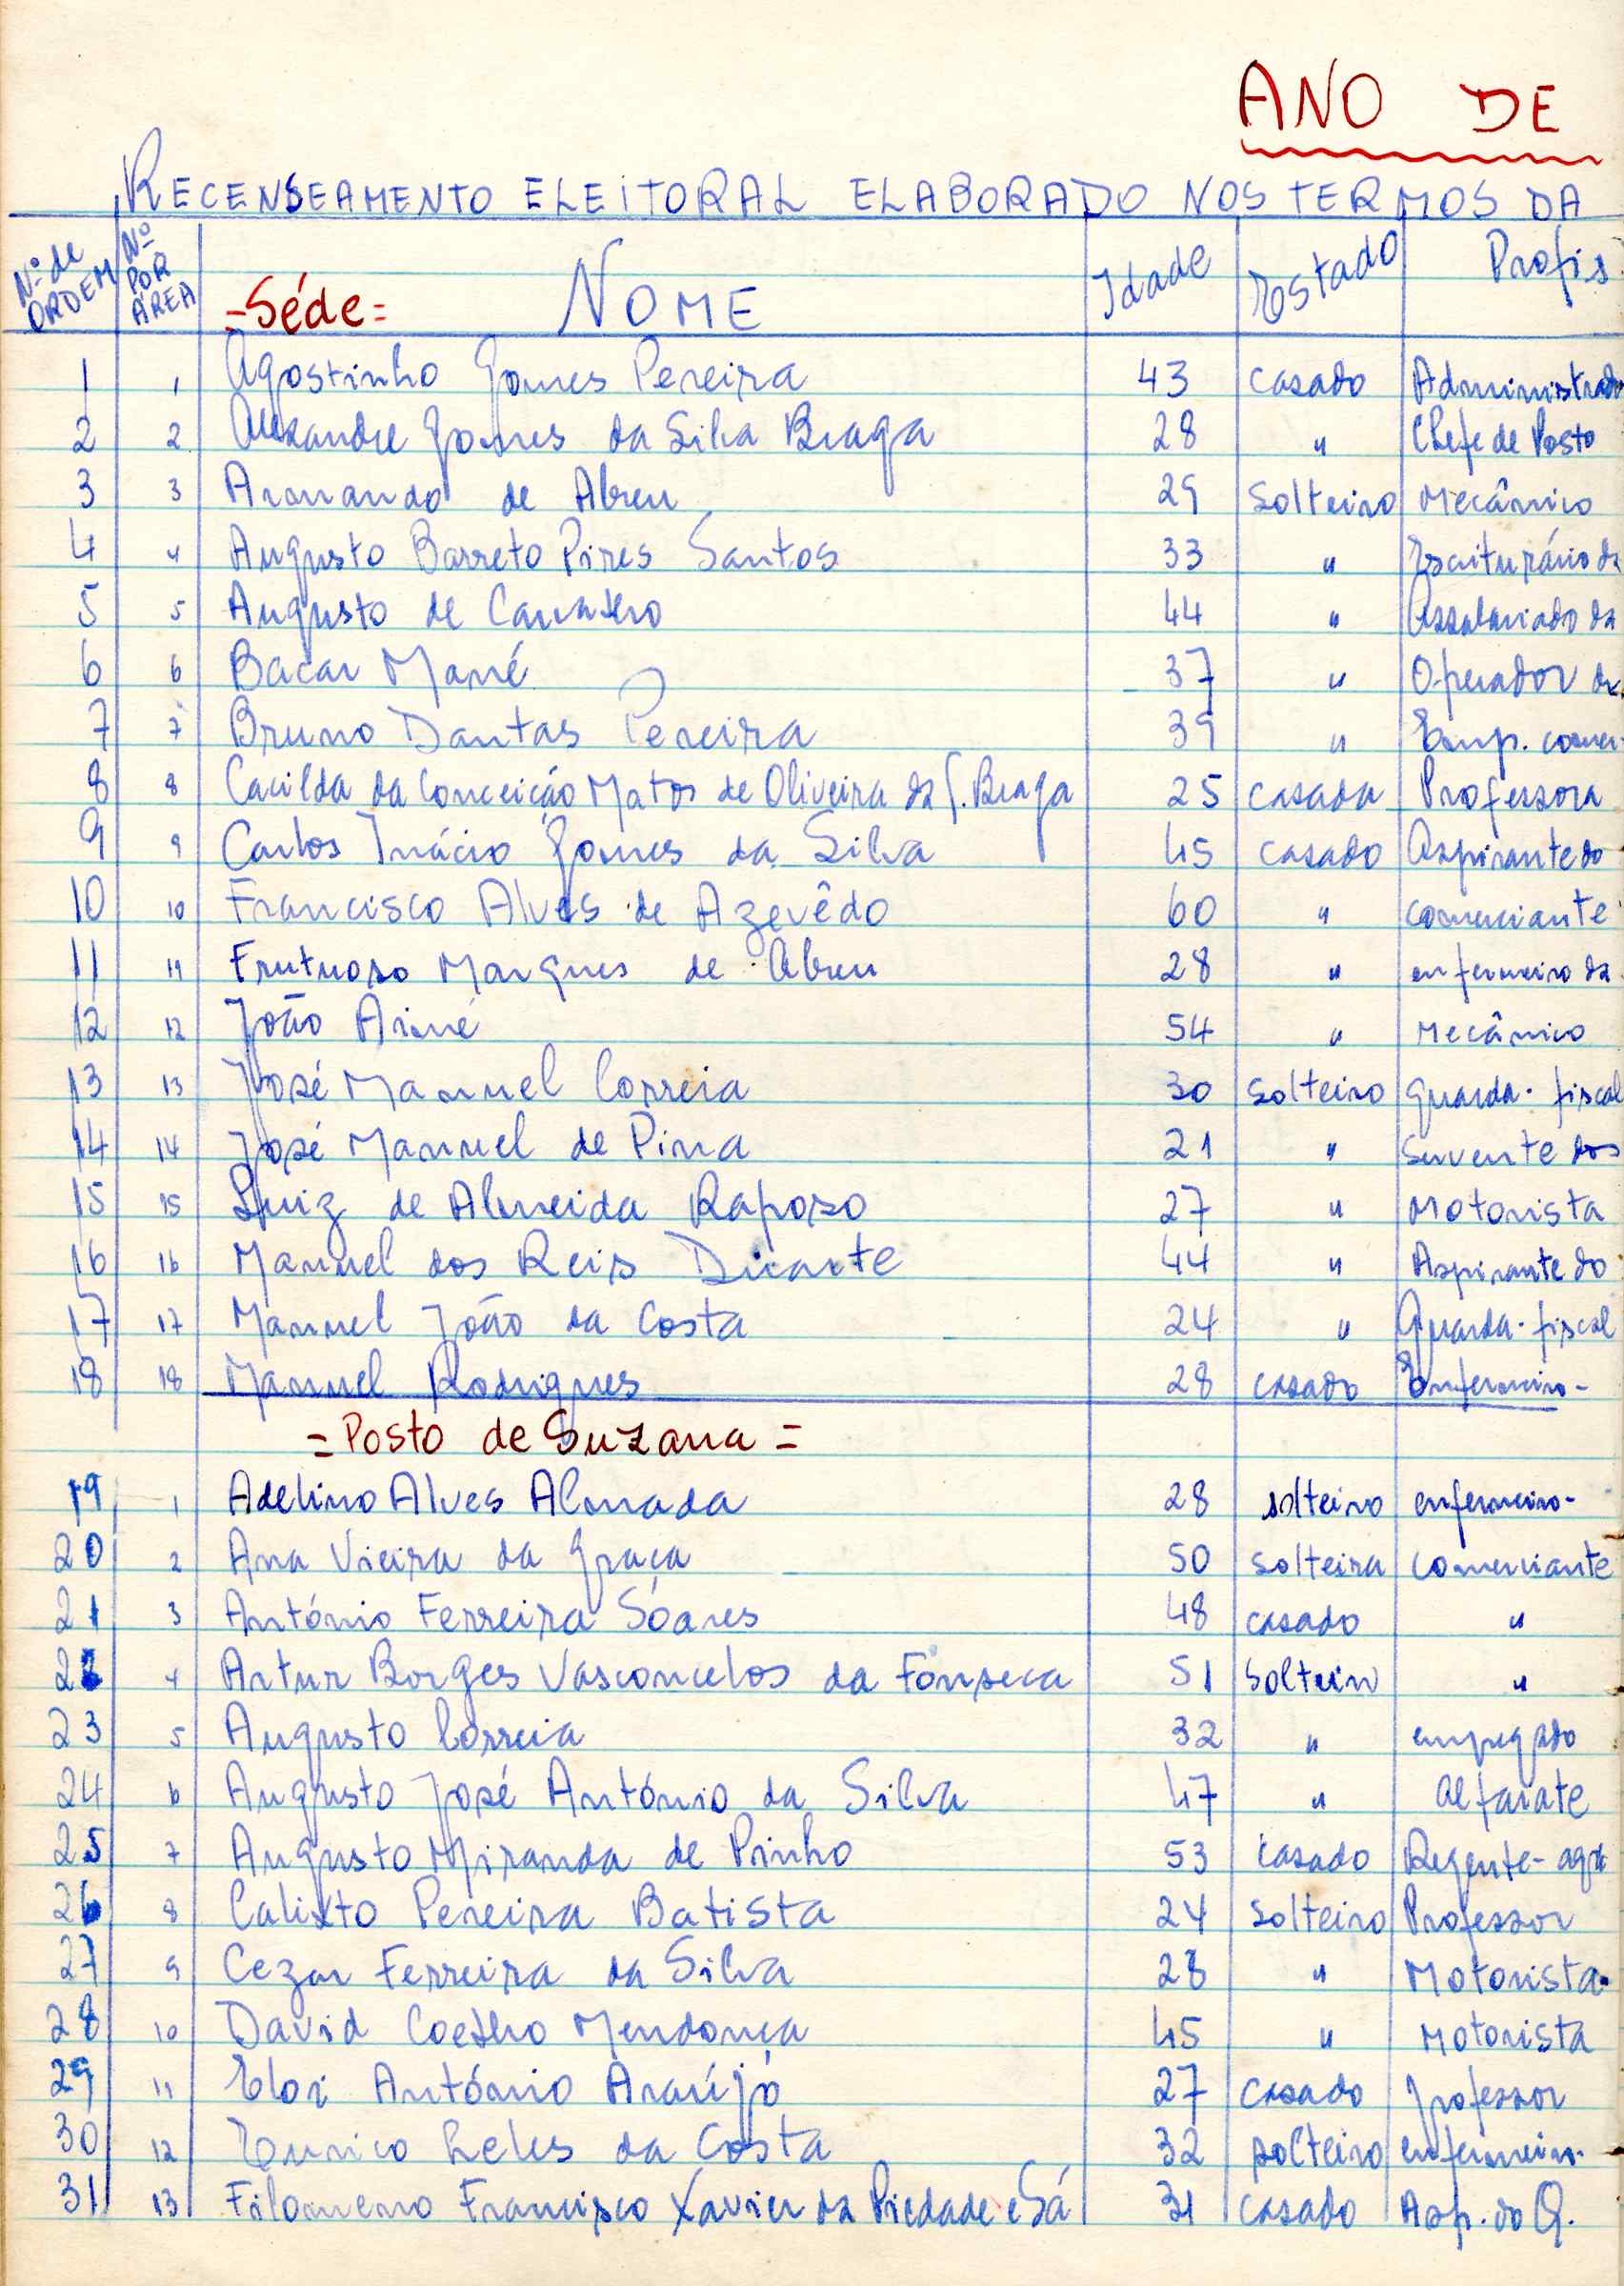 ANO DE
RECENSEAMENTO ELEITORAL ELABORADO NOS TERMOS DA
Nº de ORDEM Nº POR ÁREA =Séde= NOME Idade Estado Profis
1 1 Agostinho Gomes Pereira 43 casado Administrado
2 2 Alexandre Gomes da Silva Braga 28 " Chefe de Posto
3 3 Armando de Abreu 29 Solteiro Mecânico
4 4 Augusto Barreto Pires Santos 33 " Escriturário da
5 5 Augusto de Carvalho 44 " Assalariado da
6 6 Bacar Mané 37 " Operador da
7 7 Bruno Dantas Pereira 39 " Emp. comer
8 8 Cacilda da Conceição Matos de Oliveira da S. Braga 25 casada Professora
9 9 Carlos Inácio Gomes da Silva 45 casado Aspirante do
10 10 Francisco Alves de Azevêdo 60 " comerciante
11 11 Frutuoso Marques de Abreu 28 " enfermeiro da
12 12 João Aimé 54 " Mecânico
13 13 José Manuel Correia 30 solteiro guarda-fiscal
14 14 José Manuel de Pina 21 " servente dos
15 15 Luiz de Almeida Raposo 27 " Motorista
16 16 Manuel dos Reis Duarte 44 " Aspirante do
17 17 Manuel João da Costa 24 " Guarda-fiscal
18 18 Manuel Rodrigues 28 casado Enfermeiro-
=Posto de Suzana=
19 1 Adelino Alves Almada 28 solteiro enfermeiro-
20 2 Ana Vieira da Graça 50 solteira comerciante
21 3 António Ferreira Sóares 48 casado "
22 4 Artur Borges Vasconcelos da Fonseca 51 Solteiro "
23 5 Augusto Correia 32 " empregado
24 6 Augusto José António da Silva 47 " alfaiate
25 7 Augusto Miranda de Pinho 53 casado Regente-agr
26 8 Calixto Pereira Batista 24 solteiro Professor
27 9 Cezar Ferreira da Silva 28 " Motorista
28 10 David Coelho Mendonça 45 " Motorista
29 11 Eloi António Araújo 27 casado professor
30 12 Eurico Leles da Costa 32 solteiro enfermeiro-
31 13 Filomeno Francisco Xavier da Piedade e Sá 31 casado Asp. do Q.